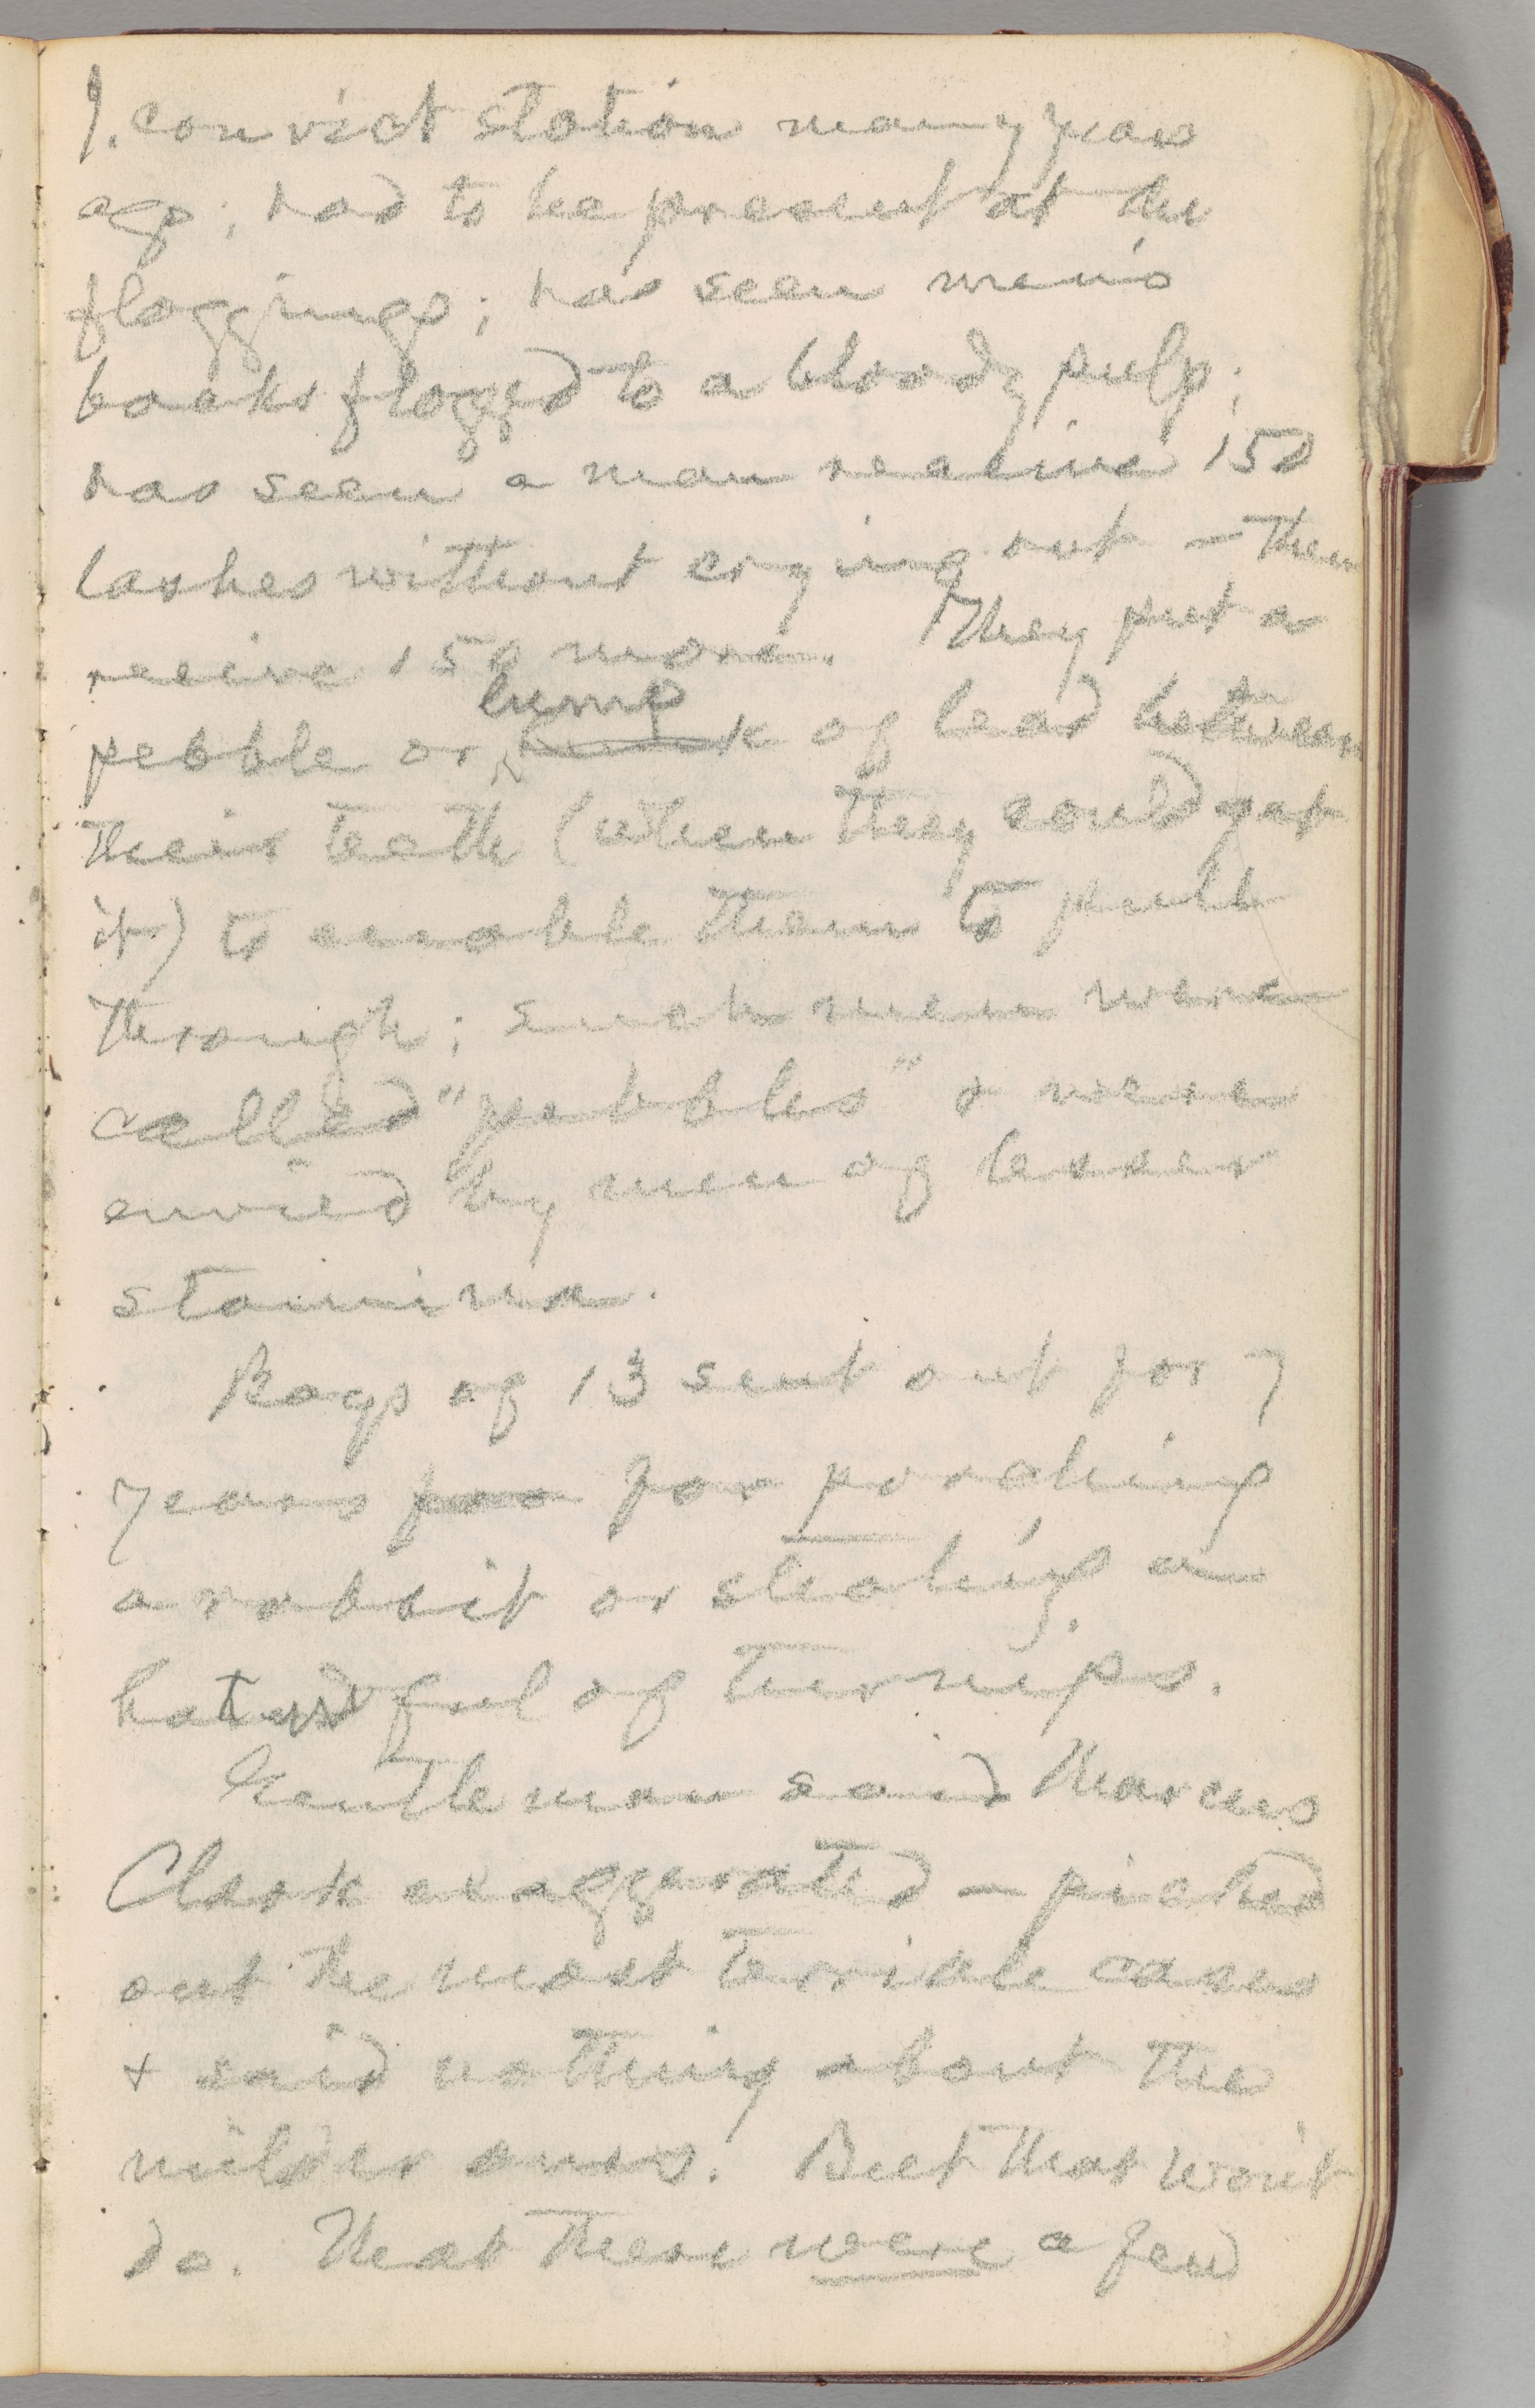 I. convict station many years
ago; had to be present at the
floggings; has seen men's
backs flogged to a bloody pulp;
has seen a man receive 150
lashes without crying out — then
receive 150 more. They put a
pebble or lump of lead between
their teeth (when they could get
it) to enable them to pull
through; such men were
called "pebbles" & were
envied by men of lesser
stamina.
Boys of 13 sent out for 7
years for for poaching
a rabbit or stealing a
hatful of turnips.
Gentleman said Marcus
Clark exaggerated — picked
out the most terrible cases
+ said nothing about the
milder ones. But that won't
do. That there were a few